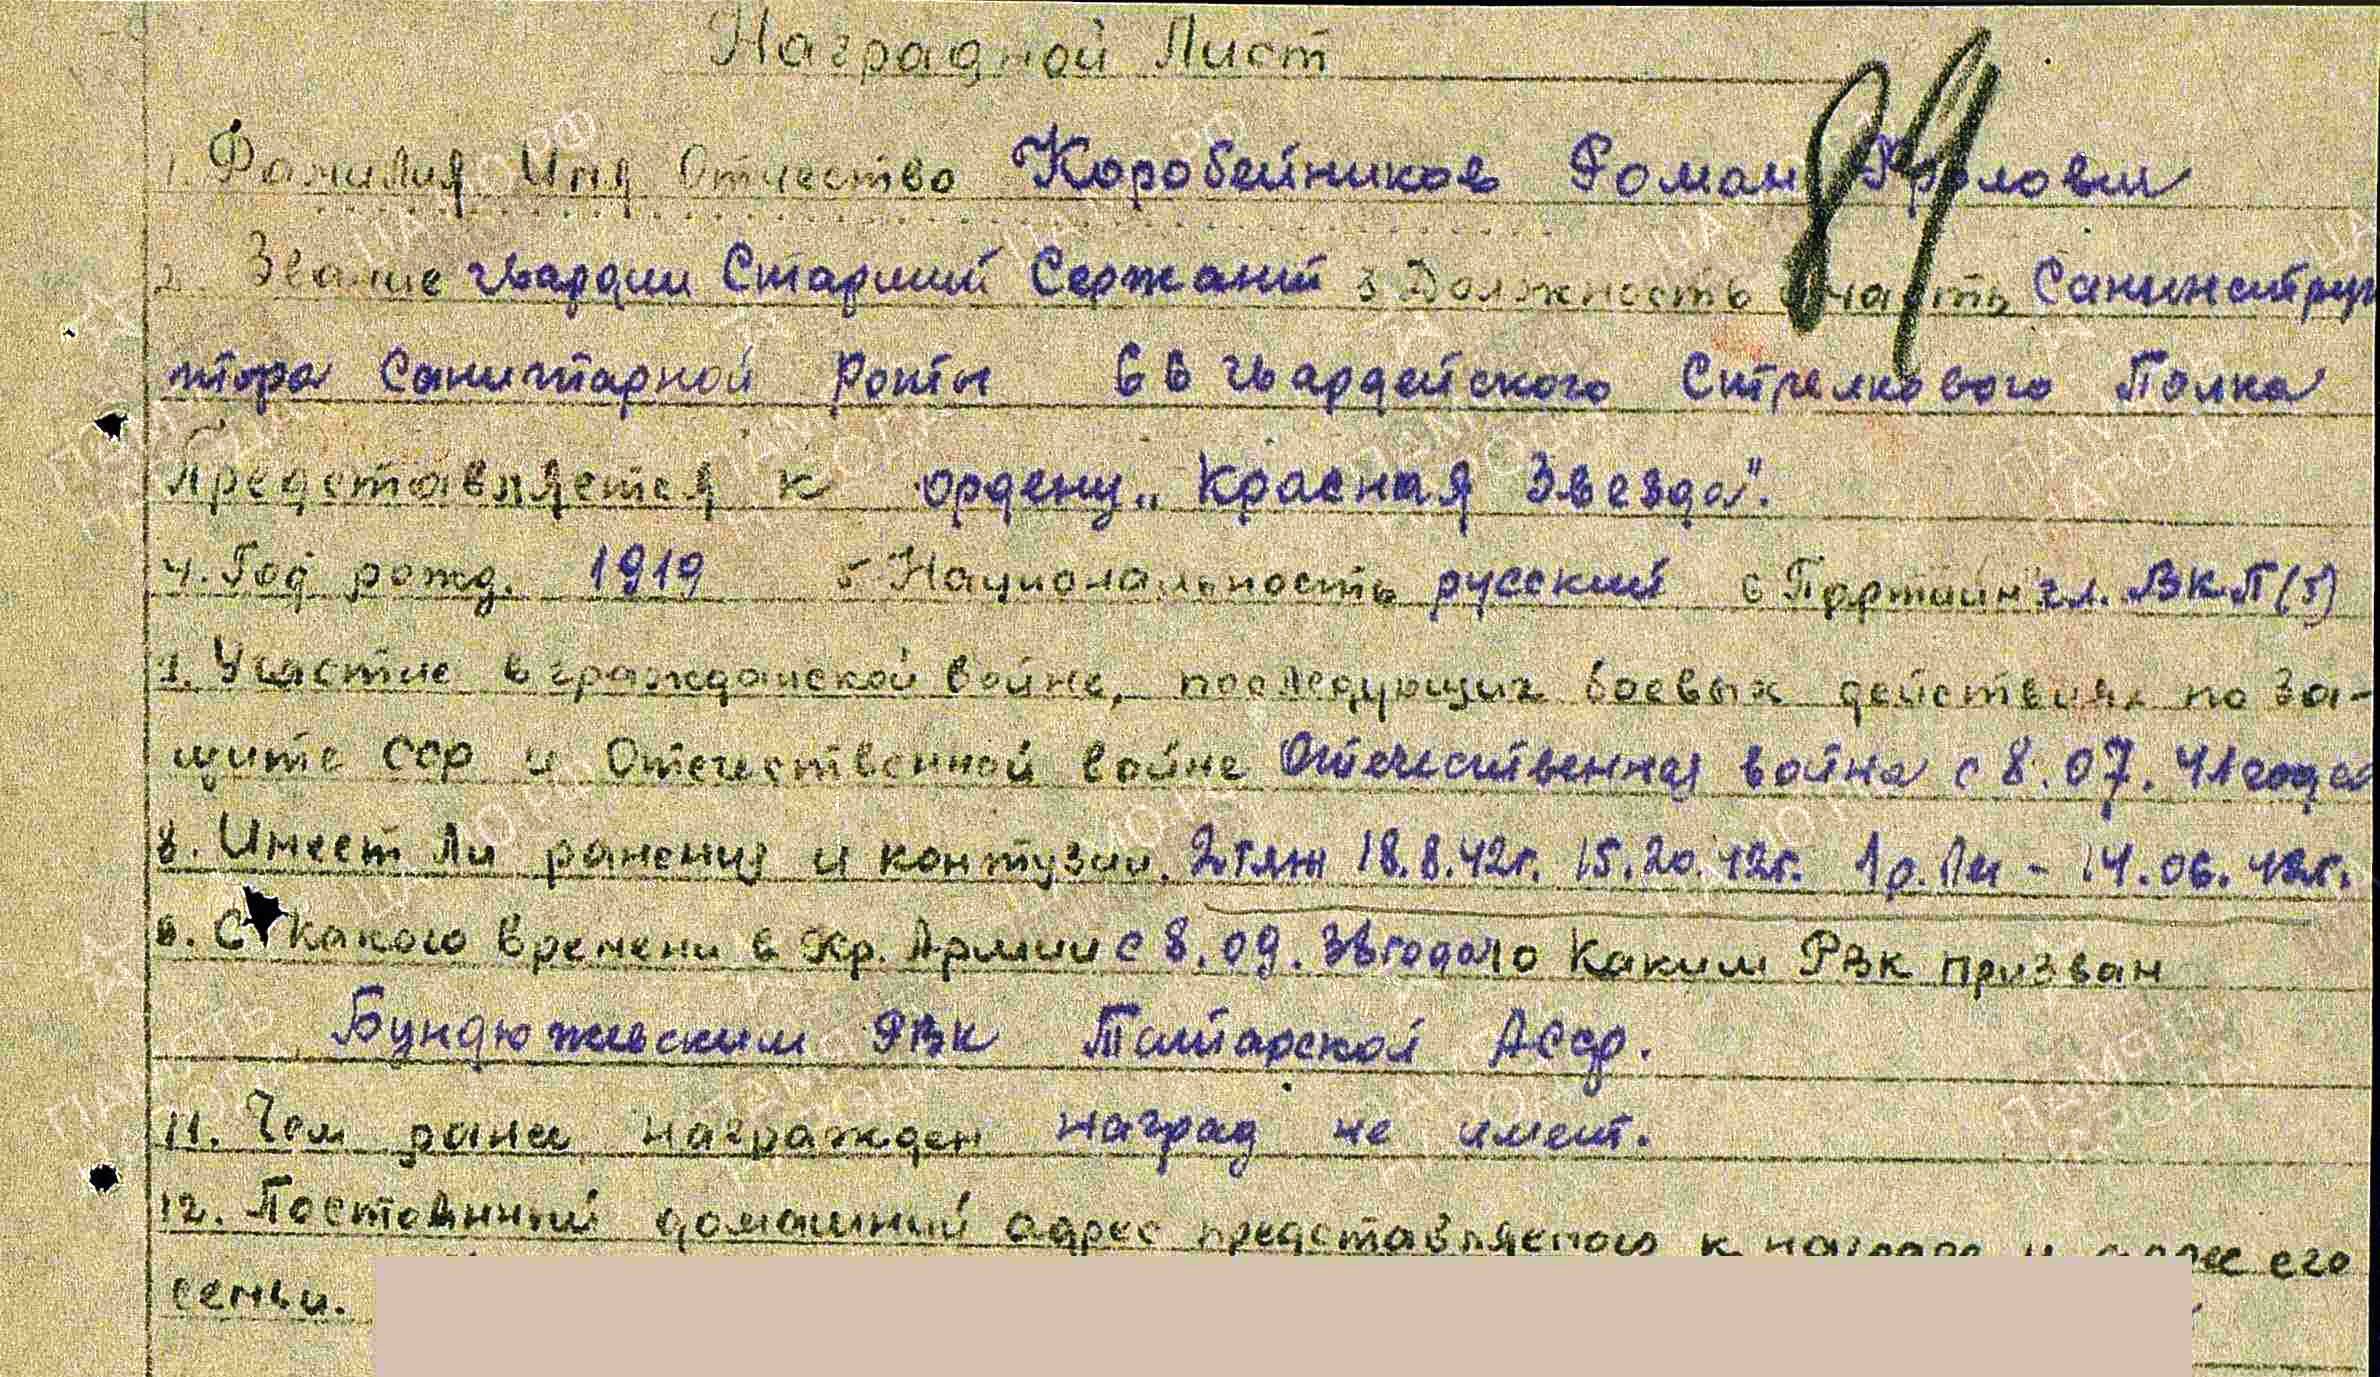 Наградной Лист
84
1. Фамилия Имя Отчество Коробейников Роман Фролович
2. Звание гвардии Старший Сержант 3 Должность и часть Санинструк
тора Санитарной Роты 66 гвардейского Стрелкового Полка
Представляется к ордену „Красная Звезда".
4. Год рожд. 1919 5 Национальность русский 6 Партийн чл. ВКП(б)
7. Участие в гражданской войне, последующих боевых действиях по за-
щите ССР и Отечественной войне Отечественная война с 8.07.41 года
8. Имеет Ли ранения и контузии. 2 тяж 18.8.42г. 15.20.42г. 1 р. Лег - 14.06.42г.
9. С Какого времени в Кр. Армии с 8.09.38 года 10 Каким РВК призван
Бундюжевским РВК Татарской АССР.
11. Чем ранее награжден наград не имеет.
12. Постоянный домашний адрес представляемого к награде и его
семьи.